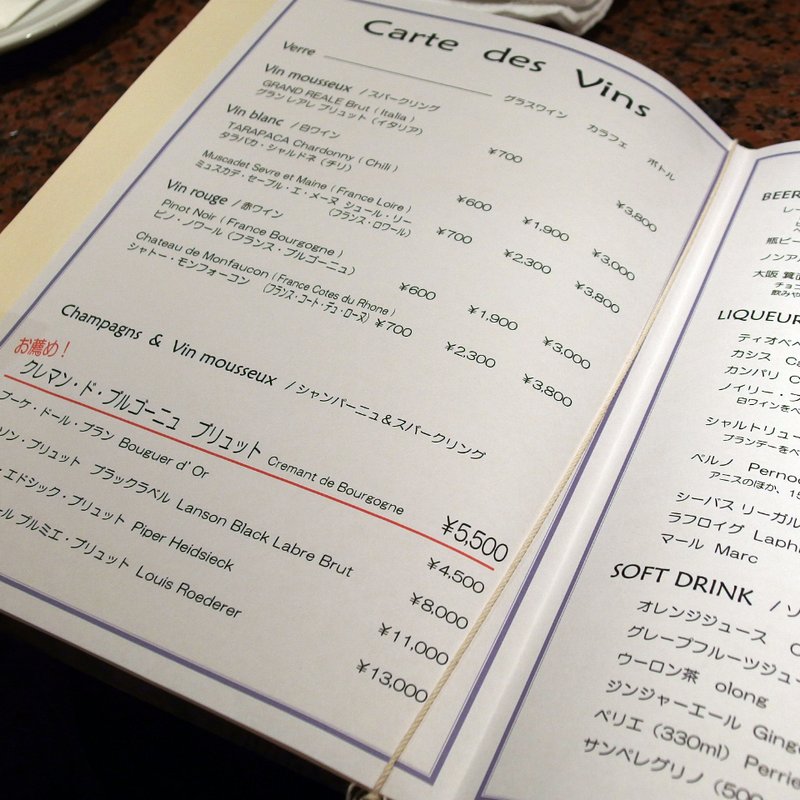 Carte des Vins
Verre グラスワイン カラフェ ボトル
Vin mousseux / スパークリング
GRAND REALE Brut ( Italia )
グラン レアレ ブリュット（イタリア） ¥700 ¥3,800
Vin blanc / 白ワイン
TARAPACA Chardonny ( Chili )
タラパカ・シャルドネ（チリ） ¥600 ¥1,900 ¥3,000
Muscadet Sevre et Maine ( France Loire )
ミュスカデ・セーブル・エ・メーヌ シュール・リー
（フランス・ロワール） ¥700 ¥2,300 ¥3,800
Vin rouge / 赤ワイン
Pinot Noir ( France Bourgogne )
ピノ・ノワール（フランス・ブルゴーニュ） ¥600 ¥1,900 ¥3,000
Chateau de Monfaucon ( France Cotes du Rhone )
シャトー・モンフォーコン （フランス・コート・デュ・ローヌ） ¥700 ¥2,300 ¥3,800
Champagns & Vin mousseux / シャンパーニュ＆スパークリング
お薦め！
クレマン・ド・ブルゴーニュ ブリュット Cremant de Bourgogne ¥5,500
ブーケ・ドール・ブラン Bouguer d' Or ¥4,500
ソン・ブリュット ブラックラベル Lanson Black Labre Brut ¥8,000
エドシック・ブリュット Piper Heidsieck ¥11,000
ル ブルミエ・ブリュット Louis Roederer ¥13,000
BEER
レー
瓶ビー
ノンアル
大阪 箕面
チョニ
飲みや
LIQUEUR
ティオペペ
カシス Ca
カンパリ C
ノイリー・プ
白ワインをベ
シャルトリュー
ブランデーをベ
ペルノ Perno
アニスのほか、15
シーバス リーガル
ラフロイグ Laph
マール Marc
SOFT DRINK / ソ
オレンジジュース
グレープフルーツジュー
ウーロン茶 olong
ジンジャーエール Ginge
ペリエ（330ml） Perrie
サンペレグリノ（500